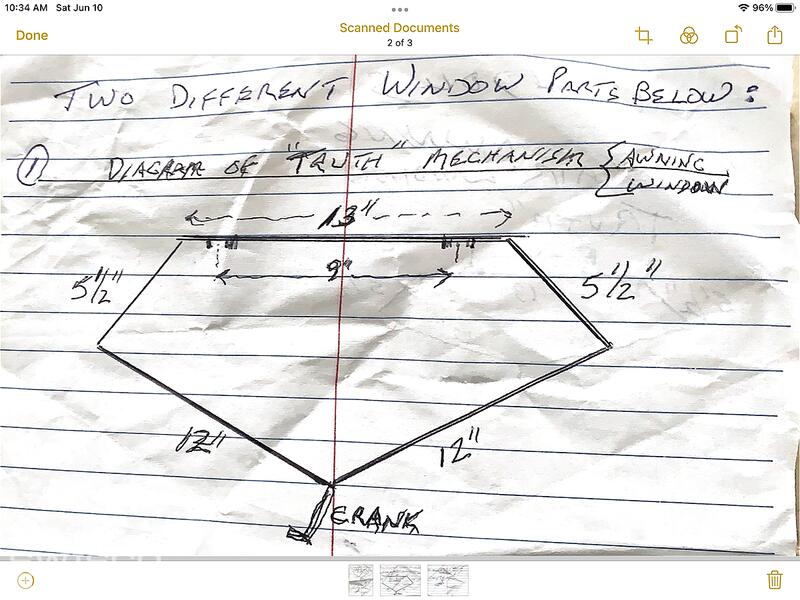 10:34 AM Sat Jun 10
96%
Done
Scanned Documents
2 of 3
TWO DIFFERENT WINDOW PARTS BELOW:
① DIAGRAM OF "TRUTH" MECHANISM { AWNING
{ WINDOW
13"
9"
5 1/2"
5 1/2"
12"
12"
CRANK